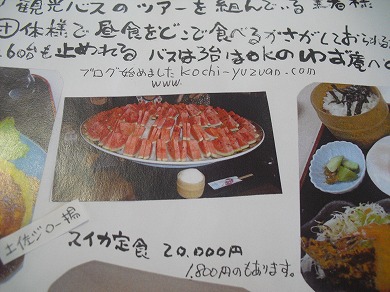 観光バスのツアーを組んでいる業者様
団体様で昼食をどこで食べるかさがしておられる
60台も止めれる バスは3台はokのゆず庵へ
ブログ始めました kochi-yuzuan.com
www.
土佐ジロー揚
スイカ定食 20.000円
1.800円のもあります。